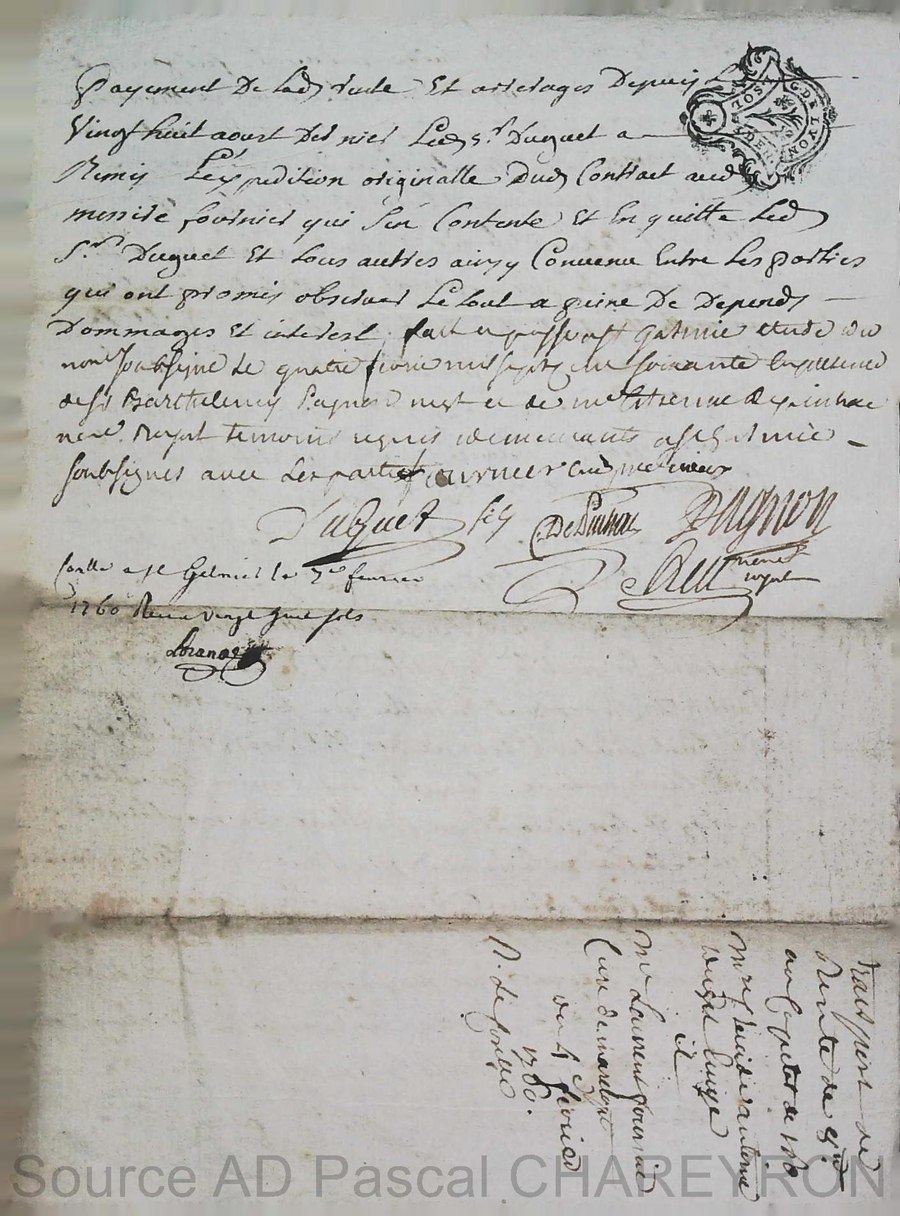 payement De Lad rente Et arrerages Depuis
Vingt huit aoust Dernier Led Sr. Duguet a
Remis L'expedition originalle Dud Contract aud
messire fournier qui S'en Contente Et En quitte Led
Sr. Duguet Et tous autres ainsy Convenu Entre Les parties
qui ont promis observer Le tout a peine De Depends
Dommages Et interest fait et passé a st Galmier etude du
nore. soubsigné le quatre fevrier mil sept cent soixante En presence
de Sr Barthelemy Pagnon et de me Etienne
nore. Royal temoins requis demeurants a st Galmier
soubsignés avec Les parties fournier curé
Duguet DePinhac Pagnon
nore royal
Conllé a st Galmier le 5e fevrier
1760 Receu vingt sols
G. DE LYON
SOL
DEN.
transport de
Rente de
au Capital de
Mre
Duguet Curé
à
Mre Laurent fournier
Curé de
du 4e fevrier
1760.
Source AD Pascal CHAREYRON